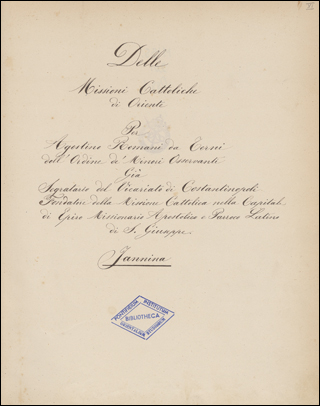 Delle
Missioni Cattoliche
di Oriente
Per
Agostino Romani da Cerni
dell' Ordine de' Minori Osservanti
Già
Segretario del Vicariato di Costantinopoli
Fondatore della Missione Cattolica nella Capitale
di Epiro Missionario Apostolico e Parroco Latino
di S. Giuseppe
Jannina
PONTIFICIUM INSTITUTUM
BIBLIOTHECA
ORIENTALIUM STUDIORUM